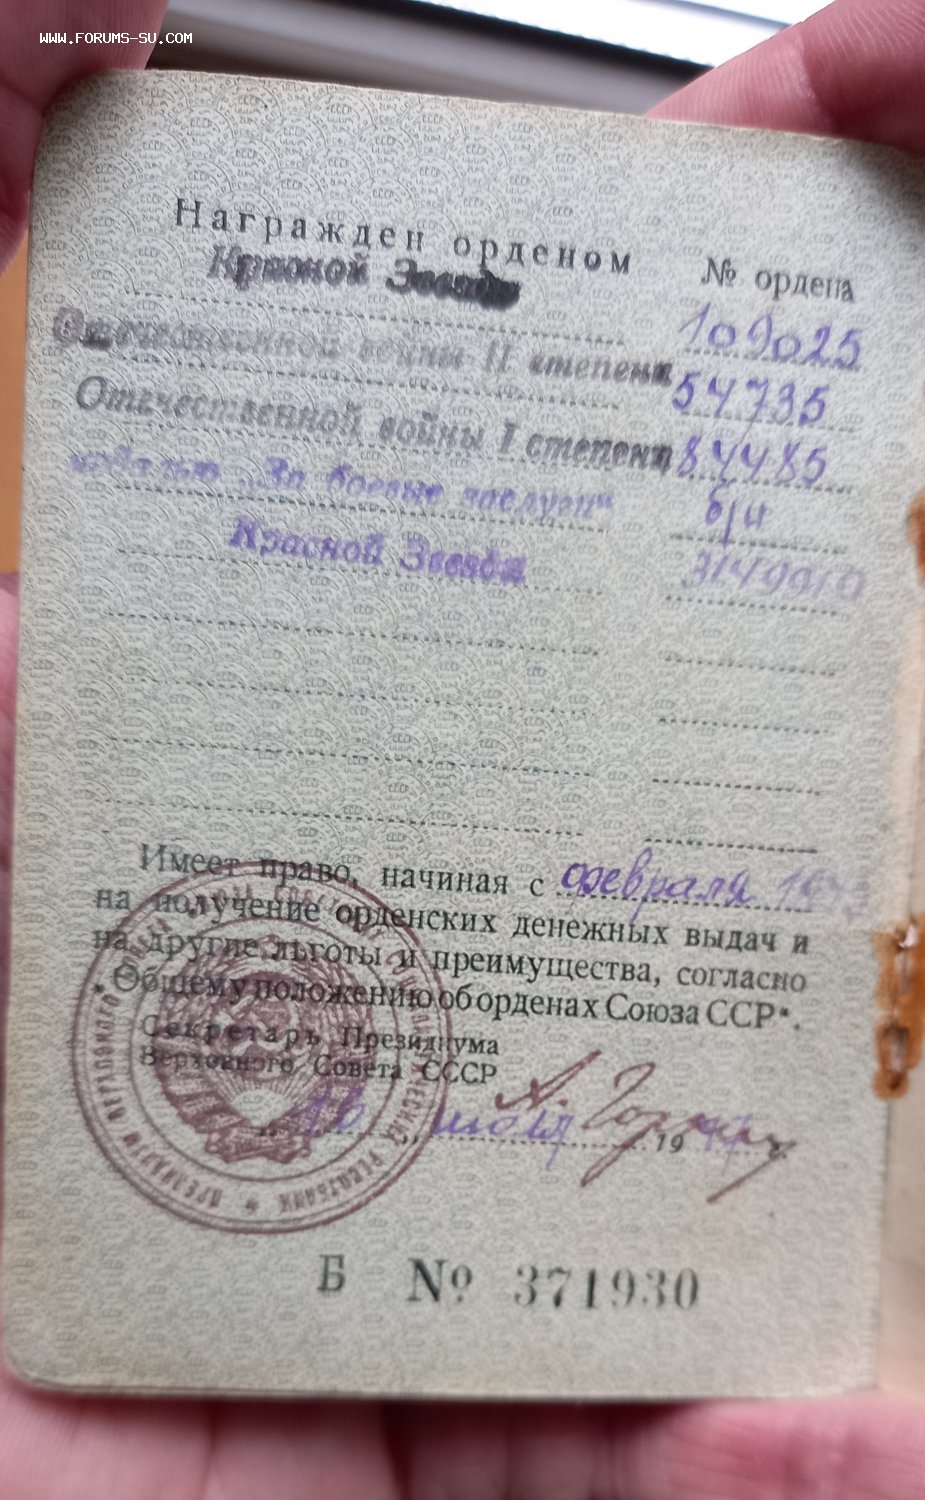 WWW.FORUMS-SU.COM
Награжден орденом № ордена
Красной Звезды 109025
Отечественной войны II степени 54735
Отечественной войны I степени 84485
медалью „За боевые заслуги“ б/н
Красной Звезды
Имеет право, начиная с февраля
на получение орденских денежных выдач и
на другие льготы и преимущества, согласно
„Общему положению об орденах Союза ССР“.
Секретарь Президиума
Верховного Совета СССР
16 июля 1947
Б № 371930